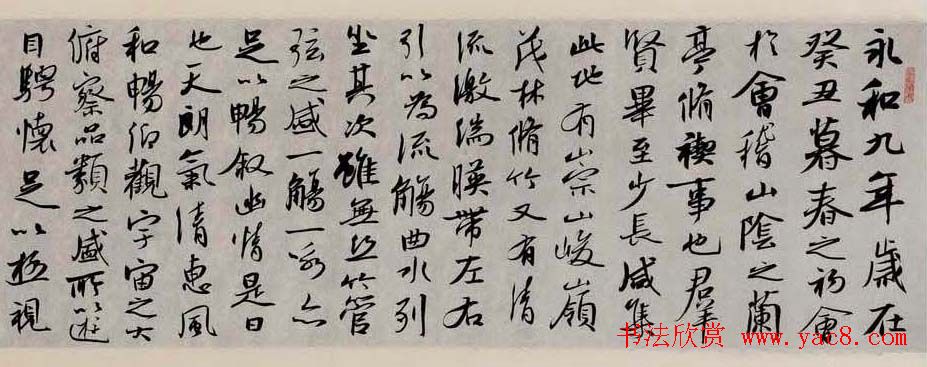 永和九年歲在
癸丑暮春之初會
於會稽山陰之蘭
亭脩禊事也羣
賢畢至少長咸集
此地有崇山峻嶺
茂林脩竹又有清
流激湍暎帶左右
引以為流觴曲水列
坐其次雖無丝竹管
弦之盛一觴一詠亦
足以暢敘幽情是日
也天朗氣清惠風
和暢仰觀宇宙之大
俯察品類之盛所以遊
目騁懷足以極視
书法欣赏 www.yac8.com